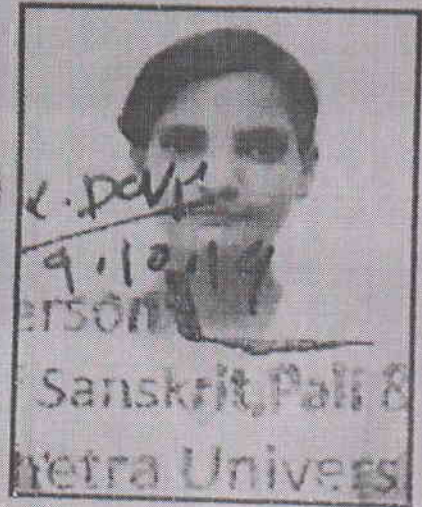 K. Devi
9.10.19
erson
Sanskrit, Pali &
hetra Univers